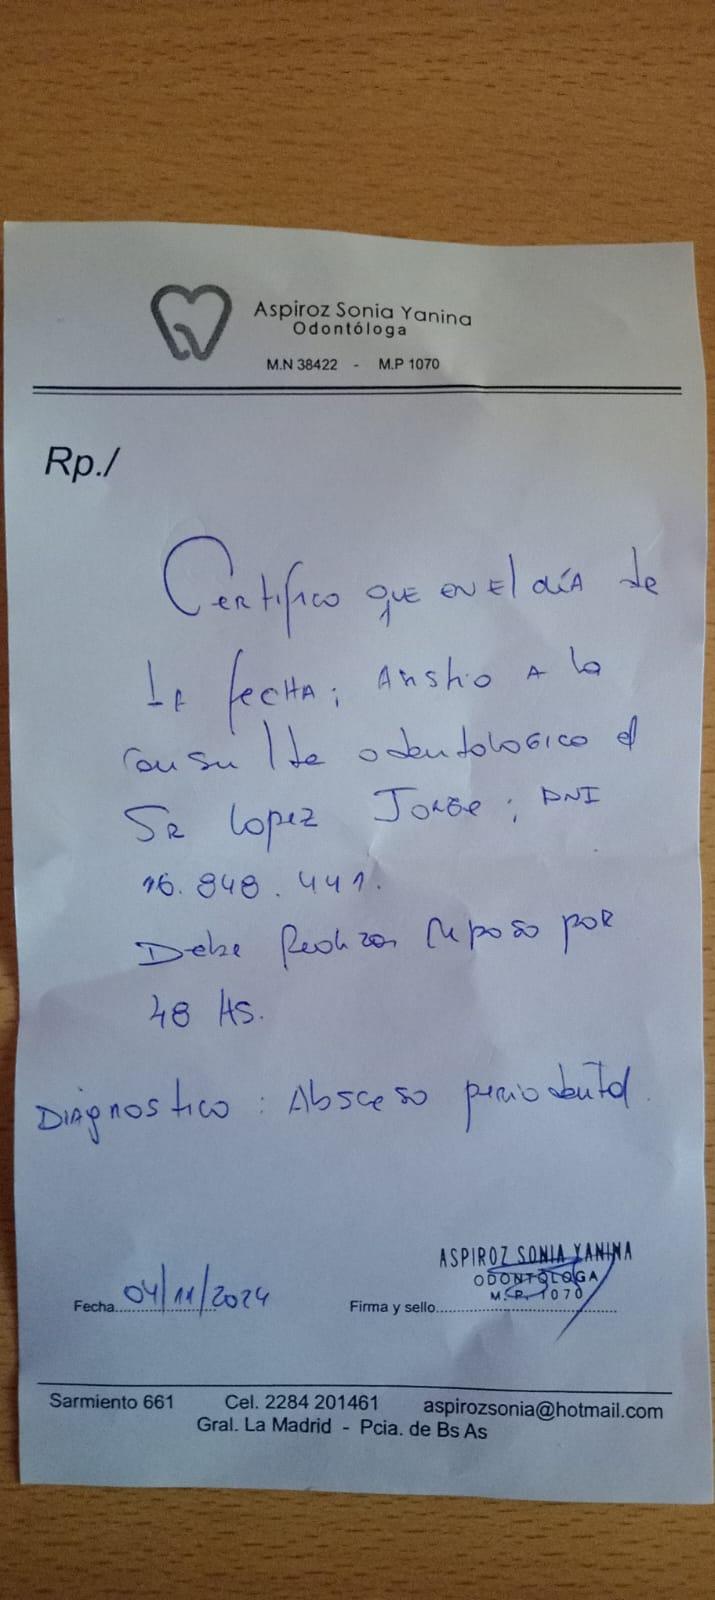 Aspiroz Sonia Yanina
Odontóloga
M.N 38422 - M.P 1070
Rp./
Certifico que en el día de
la fecha; Asistio a la
consulta odontologico el
Sr Lopez Jorge; DNI
16.848.441.
Debe Realizar reposo por
48 Hs.
Diágnostico: Absceso periodental.
ASPIROZ SONIA YANINA
ODONTÓLOGA
M.P. 1070
Fecha 04/11/2024
Firma y sello
Sarmiento 661 Cel. 2284 201461 aspirozsonia@hotmail.com
Gral. La Madrid - Pcia. de Bs As